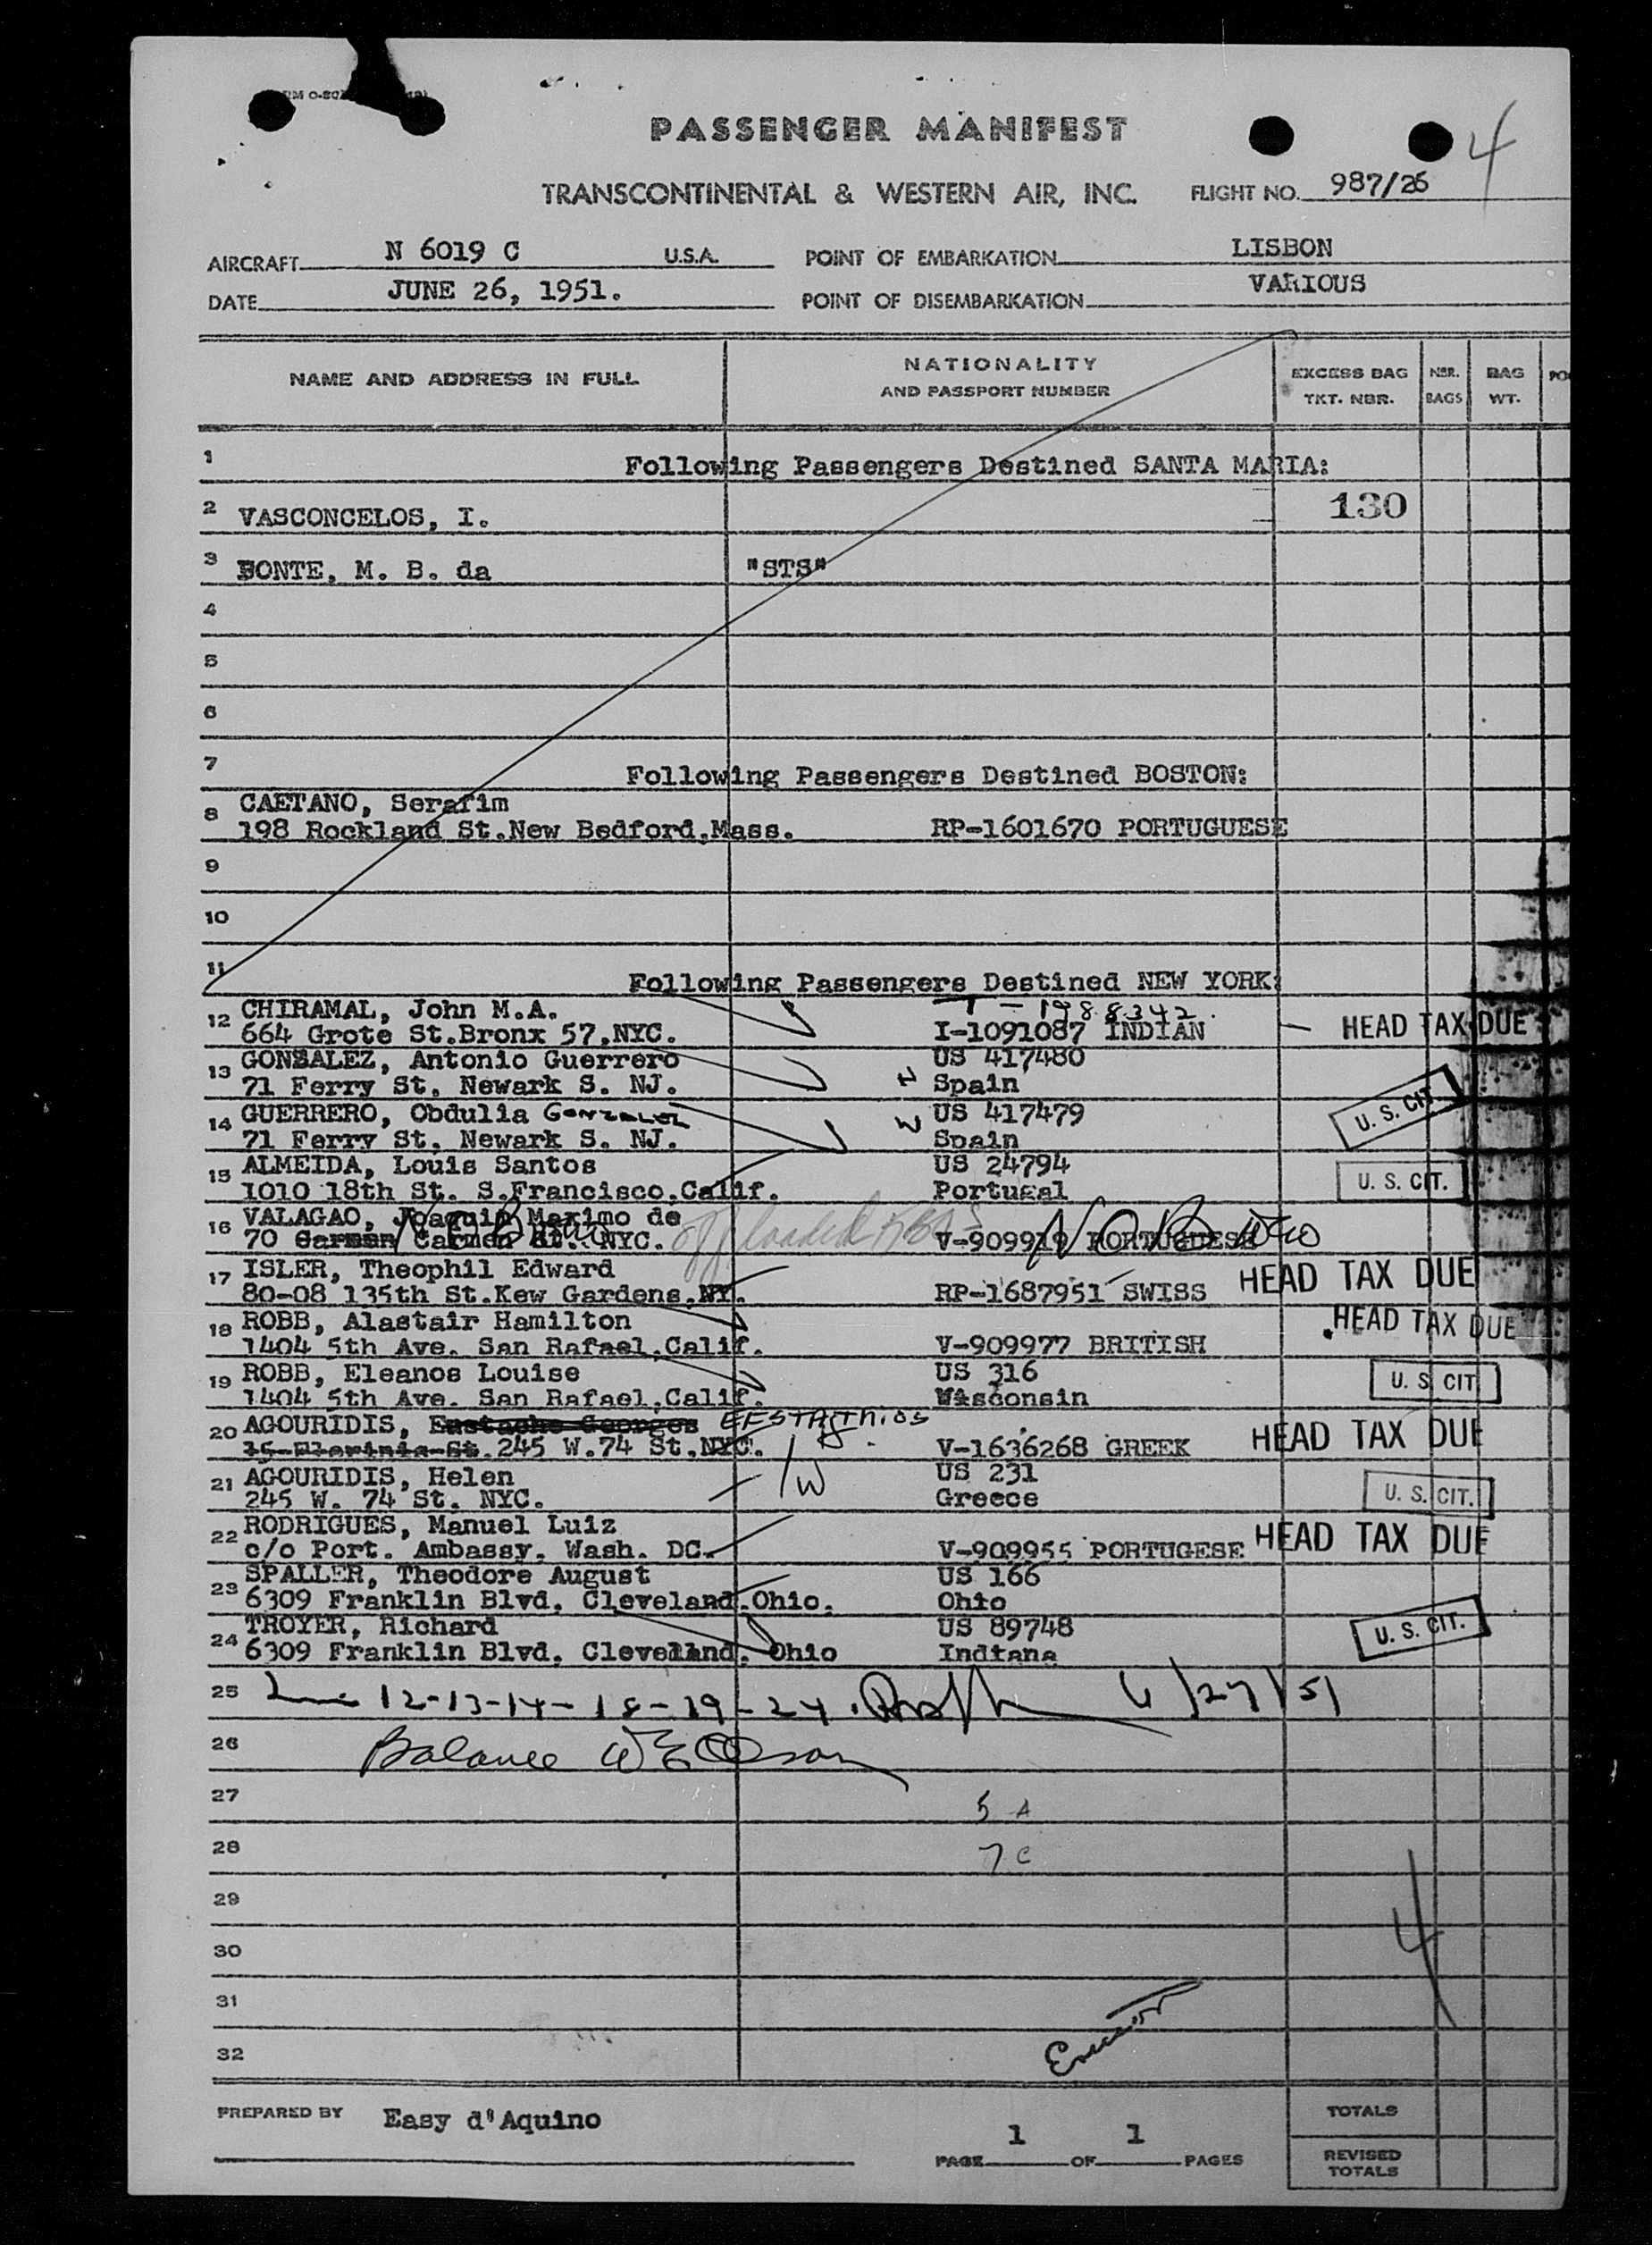 PASSENGER MANIFEST
4
TRANSCONTINENTAL & WESTERN AIR, INC. FLIGHT NO. 987/26
AIRCRAFT N 6019 C U.S.A. POINT OF EMBARKATION LISBON
DATE JUNE 26, 1951. POINT OF DISEMBARKATION VARIOUS
NAME AND ADDRESS IN FULL
NATIONALITY
AND PASSPORT NUMBER
EXCESS BAG
TKT. NBR.
NBR.
BAGS
BAG
WT.
1 Following Passengers Destined SANTA MARIA:
2 VASCONCELOS, I. 130
3 BONTE, M. B. da "STS"
4
5
6
7 Following Passengers Destined BOSTON:
8 CAETANO, Serafim
198 Rockland St.New Bedford,Mass. RP-1601670 PORTUGUESE
9
10
11 Following Passengers Destined NEW YORK:
12 CHIRAMAL, John M.A. 1988342.
664 Grote St.Bronx 57,NYC. I-1091087 INDIAN HEAD TAX DUE
13 GONSALEZ, Antonio Guerrero US 417480
71 Ferry St. Newark S. NJ. H Spain
14 GUERRERO, Obdulia GONZALEZ W US 417479 U. S. CIT.
71 Ferry St. Newark S. NJ. Spain
15 ALMEIDA, Louis Santos US 24794
1010 18th St. S.Francisco,Calif. Portugal U. S. CIT.
16 VALAGAO, Joaquin Maximo de offloaded
70 Carmen Carmen St. NYC. V-909919 PORTUGUESE
17 ISLER, Theophil Edward
80-08 135th St.Kew Gardens,NY. RP-1687951 SWISS HEAD TAX DUE
18 ROBB, Alastair Hamilton HEAD TAX DUE
1404 5th Ave. San Rafael,Calif. V-909977 BRITISH
19 ROBB, Eleanos Louise US 316
1404 5th Ave. San Rafael,Calif. Wisconsin U. S. CIT
20 AGOURIDIS, Eustache Georges EFSTATHIOS
245 W.74 St.NYC. V-1636268 GREEK HEAD TAX DUE
21 AGOURIDIS, Helen W US 231
245 W. 74 St. NYC. Greece U. S. CIT.
22 RODRIGUES, Manuel Luiz
c/o Port. Ambassy. Wash. DC. V-909955 PORTUGESE HEAD TAX DUE
23 SPALLER, Theodore August US 166
6309 Franklin Blvd. Cleveland,Ohio. Ohio
24 TROYER, Richard US 89748
6309 Franklin Blvd. Cleveland, Ohio Indiana U. S. CIT.
25 12-13-14-18-19-24. 6/27/51
26 Balance
27 5 A
28 7 C
29
30
31
32
4
PREPARED BY Easy d'Aquino
PAGE 1 OF 1 PAGES
TOTALS
REVISED
TOTALS